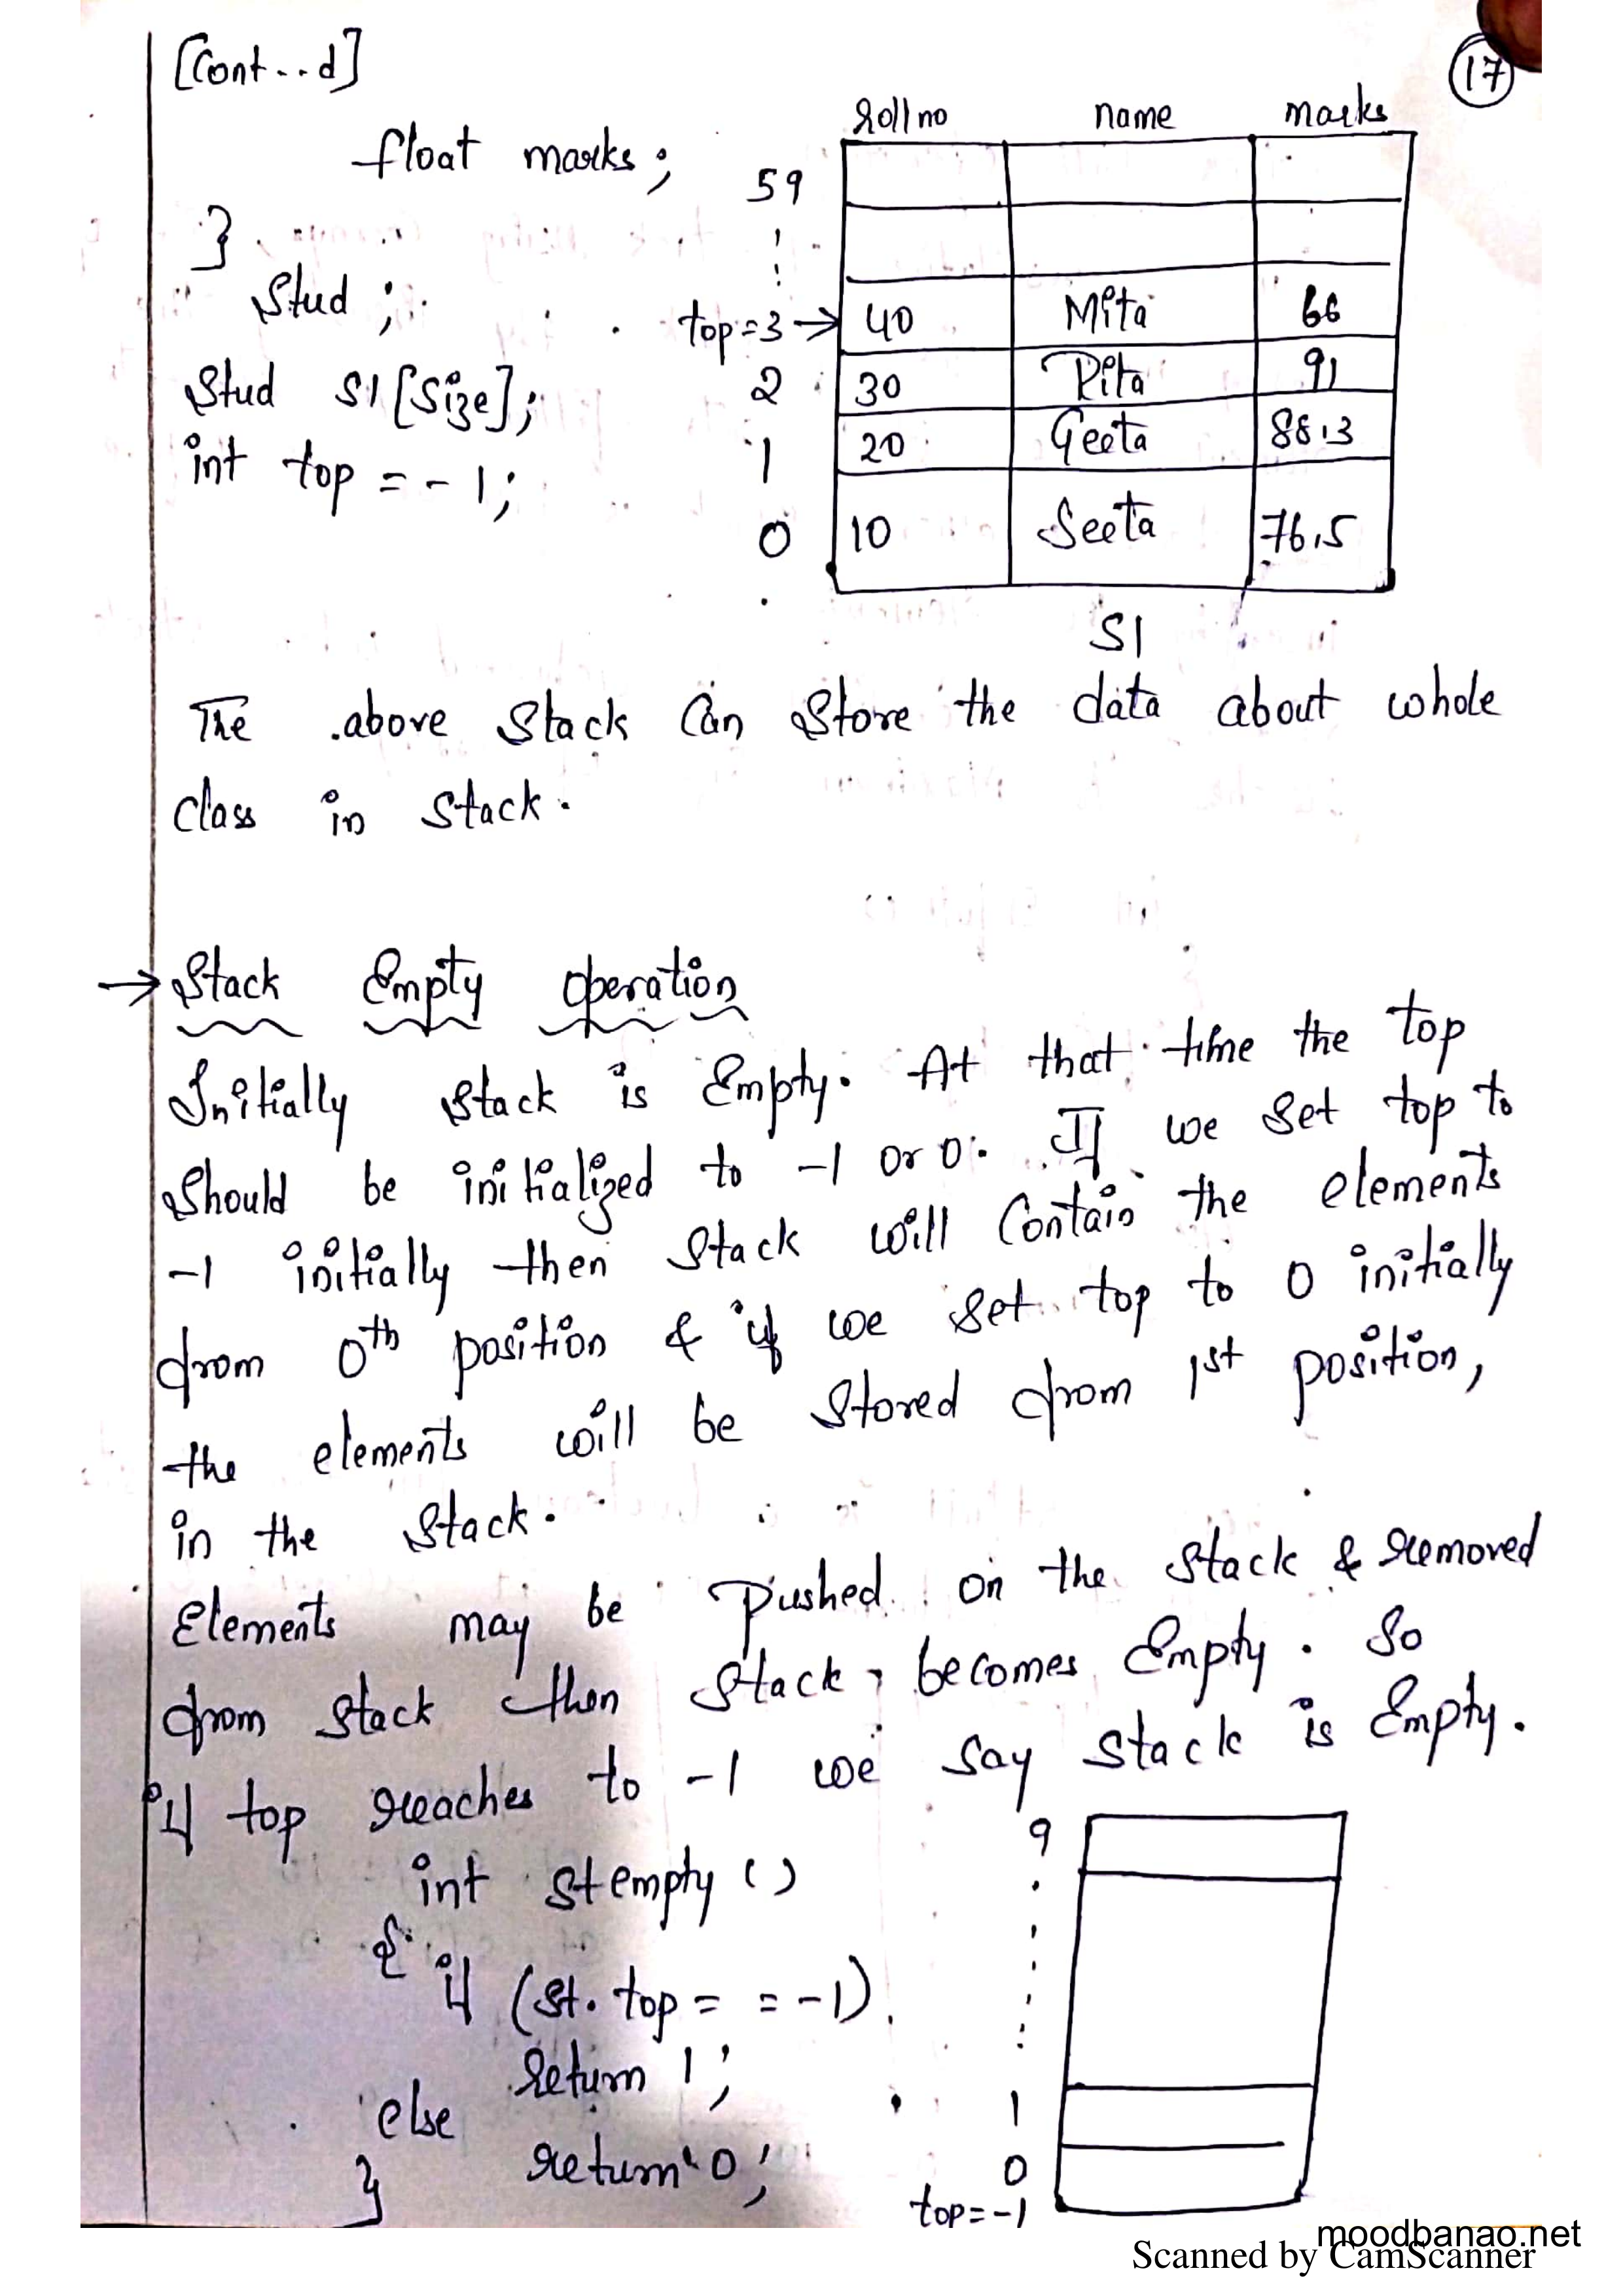 [Cont...d]
17
float marks;
}
Stud;
Stud S1[Size];
int top = -1;
roll no name marks
59
top=3 → 40 Mita 66
2 30 Rita 91
1 20 Geeta 88.3
0 10 Seeta 76.5
S1
The above Stack Can Store the data about whole
class in stack.
→ Stack Empty Operation
Initially stack is Empty. At that time the top
should be initialized to -1 or 0. If we set top to
-1 initially then stack will contain the elements
from 0th position & if we set top to 0 initially
the elements will be stored from 1st position,
in the stack.
Elements may be pushed on the stack & removed
from stack then stack becomes Empty. So
if top reaches to -1 we say stack is Empty.
int stempty ()
{ if (st.top = = -1)
return 1;
else
return 0;
}
9
1
0
top=-1
moodbanao.net
Scanned by CamScanner